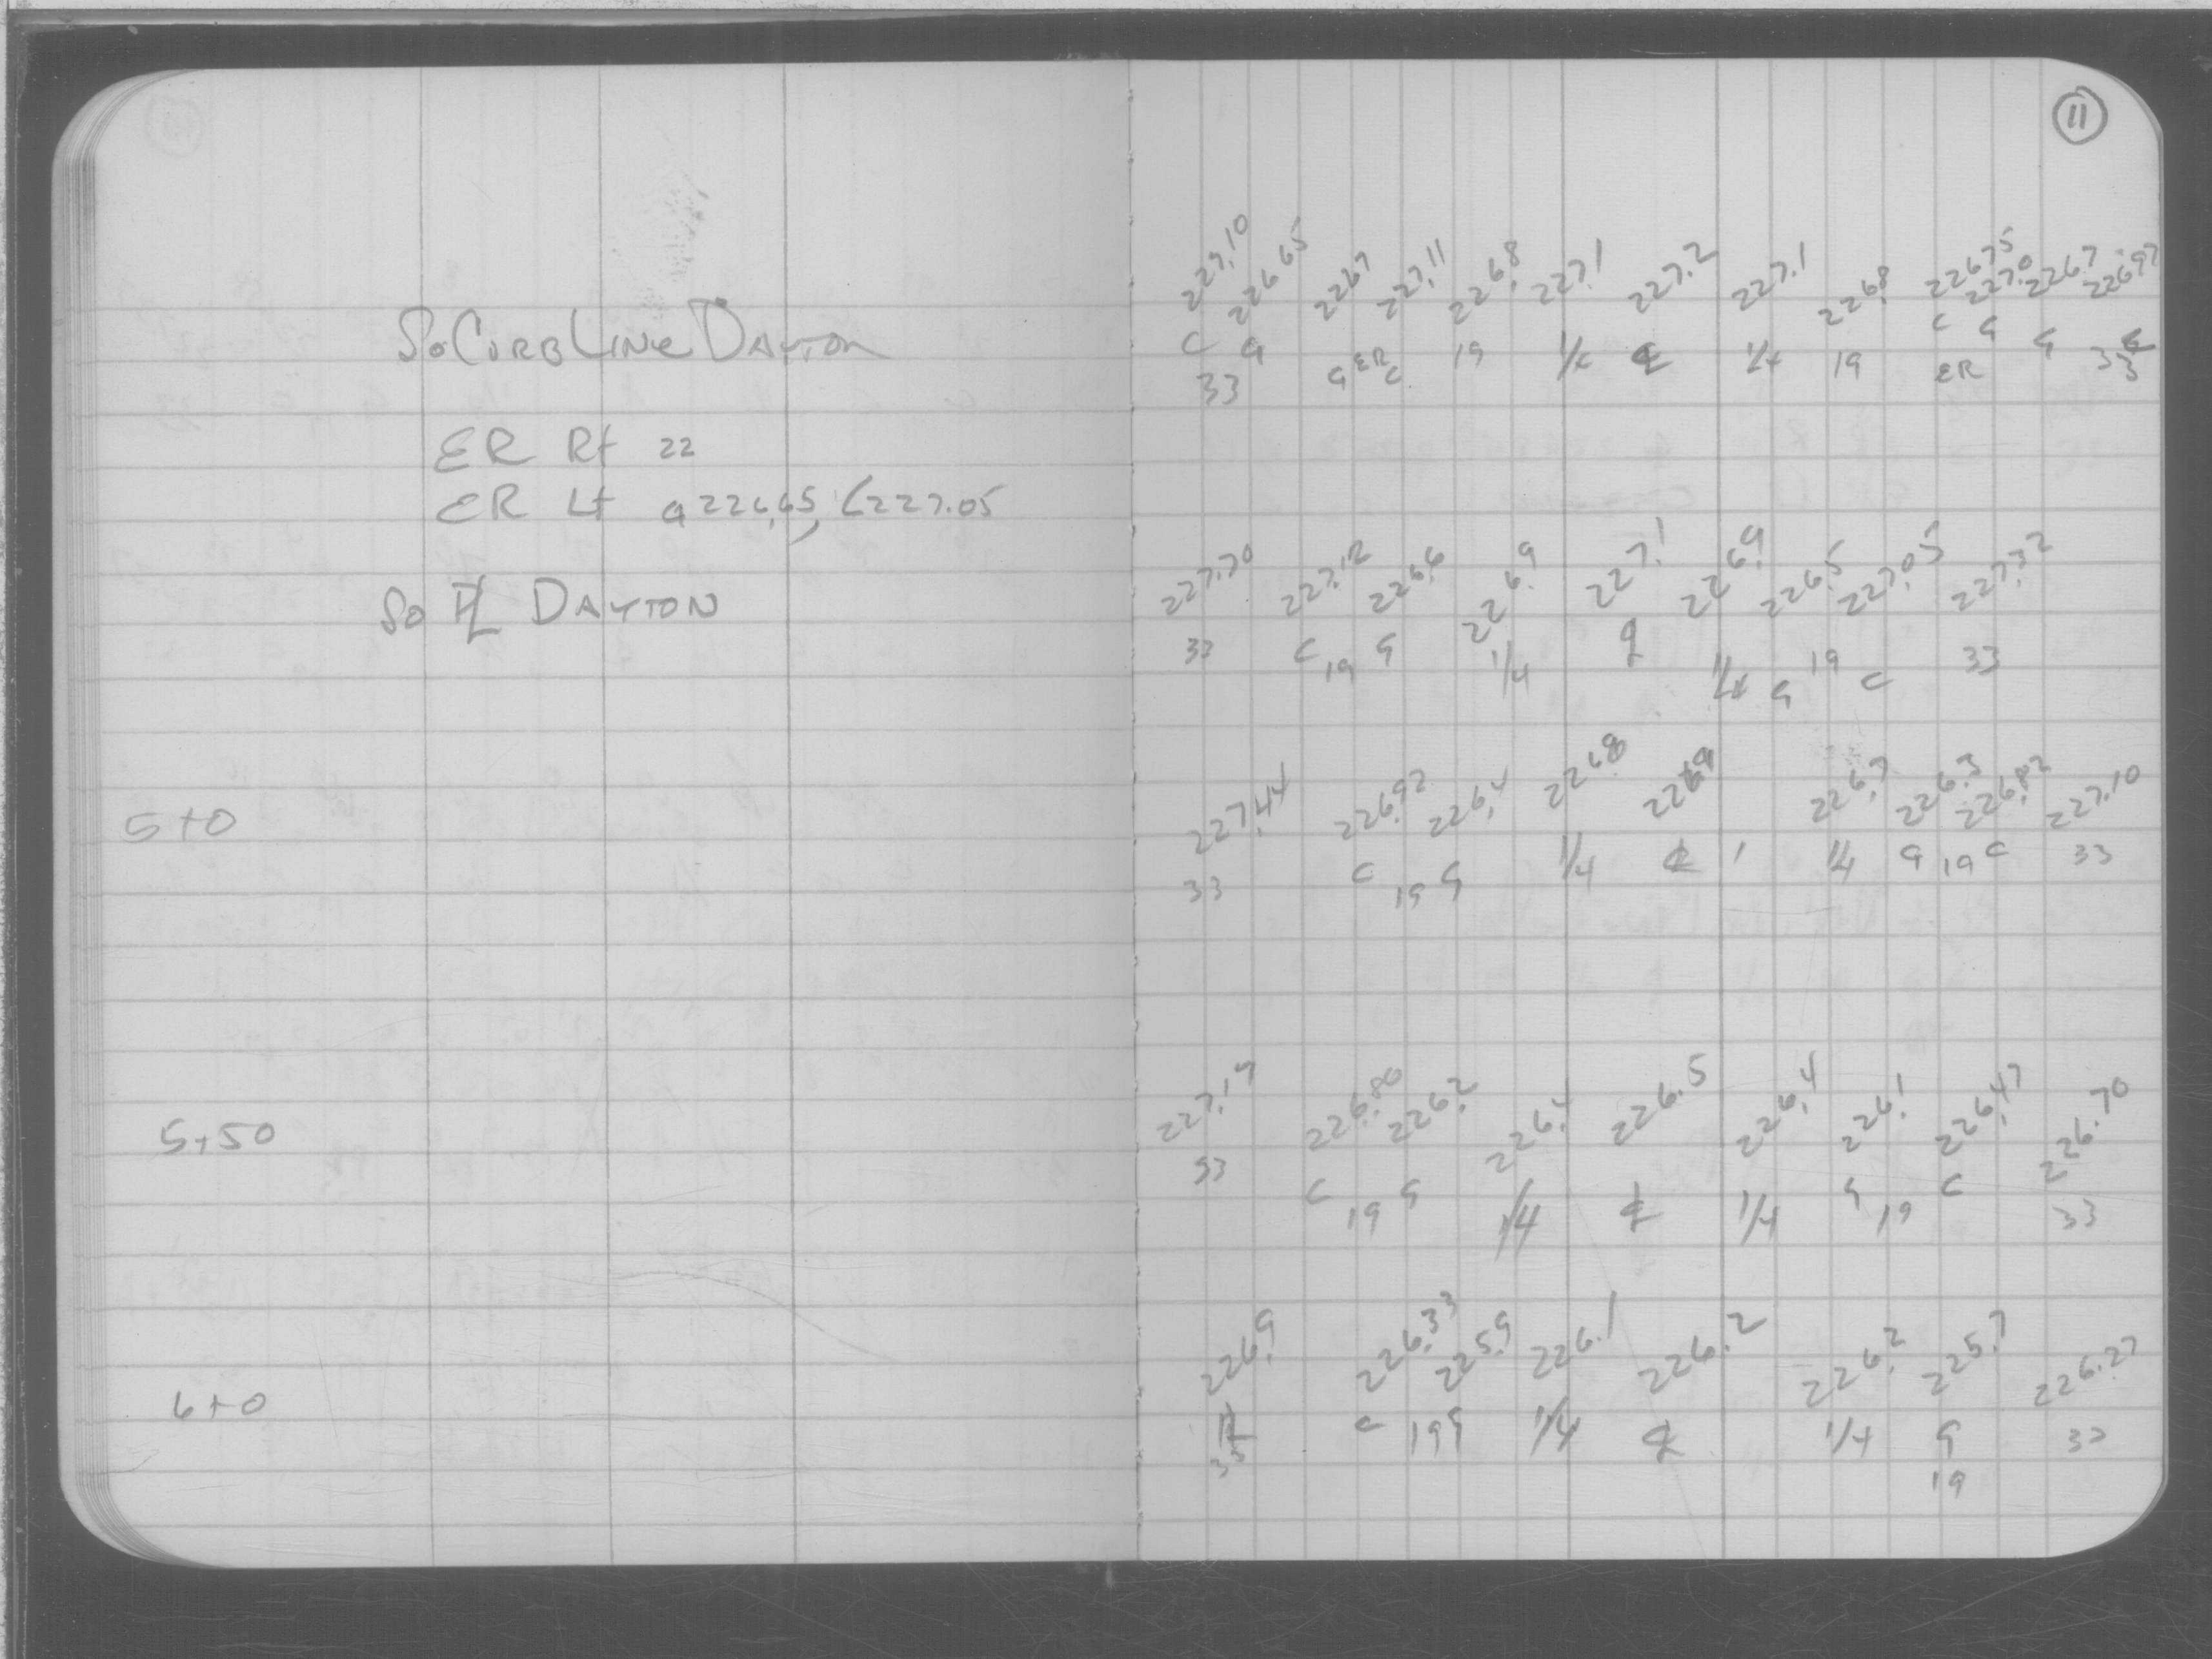 11
227.10 226.65 226.7 227.11 226.8 227.1 227.2 227.1 226.8 226.75 227.0 226.7 226.97
So Curb Line Dayton
C G G ER C 19 1/4 ℄ 1/4 19 C G G
33 ER 33
ER Rt 22
ER Lt G 226.65, C 227.05
227.70 227.12 226.6 226.9 227.1 226.9 226.5 227.05 227.32
So PL DAYTON
33 C 19 G 1/4 ℄ 1/4 G 19 C 33
227.44 226.92 226.4 226.8 226.9 226.7 226.3 226.82 227.10
5+0
33 C 19 G 1/4 ℄ 1/4 G 19 C 33
227.17 226.80 226.2 226.4 226.5 226.4 226.1 226.47 226.70
5+50
33 C 19 G 1/4 ℄ 1/4 G 19 C 33
226.9 226.33 225.9 226.1 226.2 226.2 225.7 226.27
6+0
33 C 19 G 1/4 ℄ 1/4 G 33
19